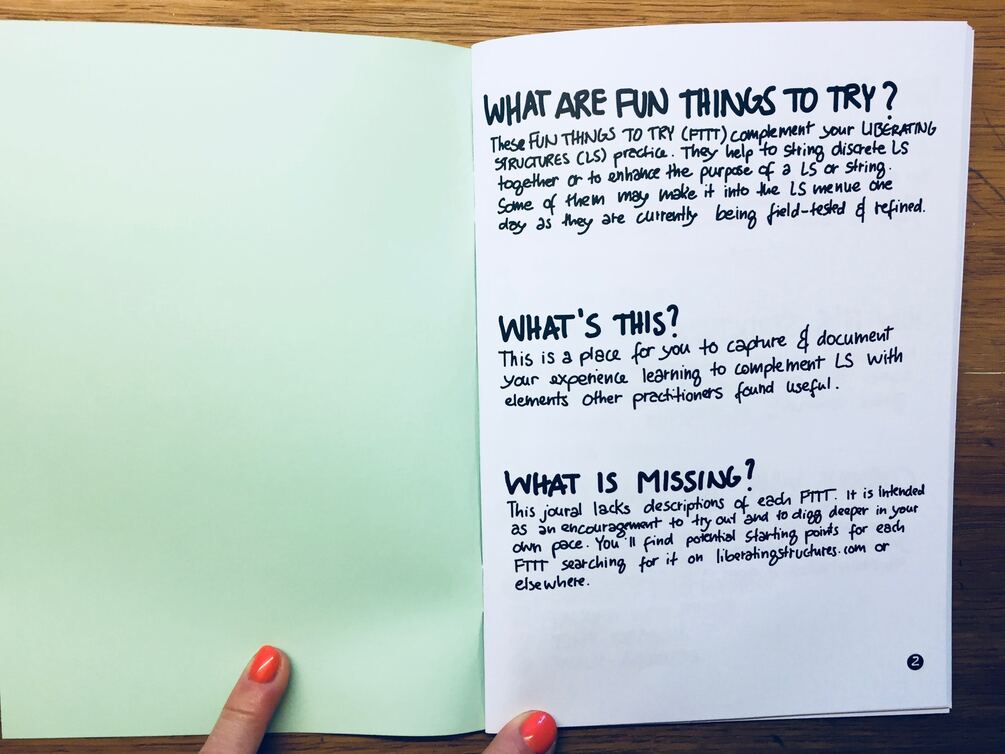 WHAT ARE FUN THINGS TO TRY?
These FUN THINGS TO TRY (FTTT) complement your LIBERATING
STRUCTURES (LS) practice. They help to string discrete LS
together or to enhance the purpose of a LS or string.
Some of them may make it into the LS menue one
day as they are currently being field-tested & refined.
WHAT'S THIS?
This is a place for you to capture & document
your experience learning to complement LS with
elements other practitioners found useful.
WHAT IS MISSING?
This joural lacks descriptions of each FTTT. It is intended
as an encouragement to try out and to digg deeper in your
own pace. You'll find potential starting points for each
FTTT searching for it on liberatingstructures.com or
elsewhere.
2